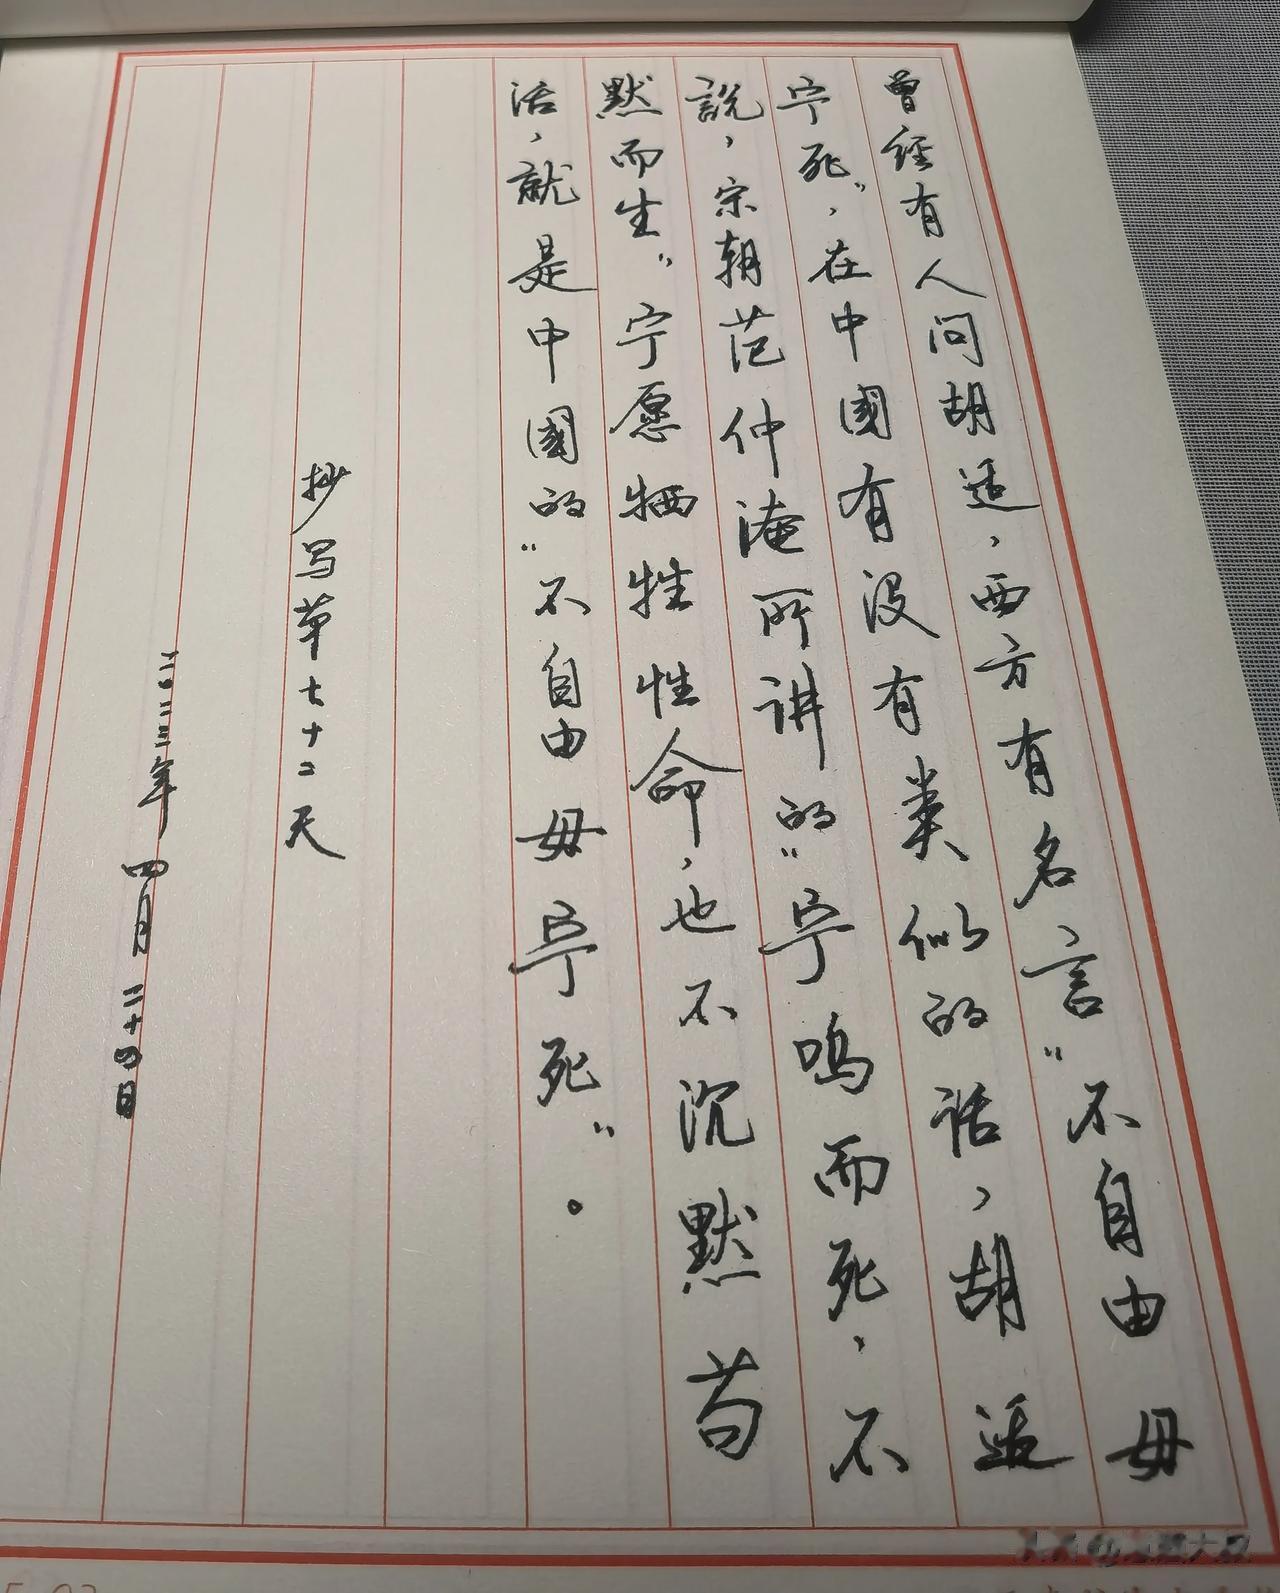 曾经有人问胡适，西方有名言“不自由毋
宁死”，在中國有没有类似的话，胡适
說，宋朝范仲淹所讲的“宁鸣而死，不
默而生”宁愿牺牲性命，也不沉默苟
活，就是中國的“不自由毋宁死”。
抄写第七十二天
二〇二三年四月二十四日